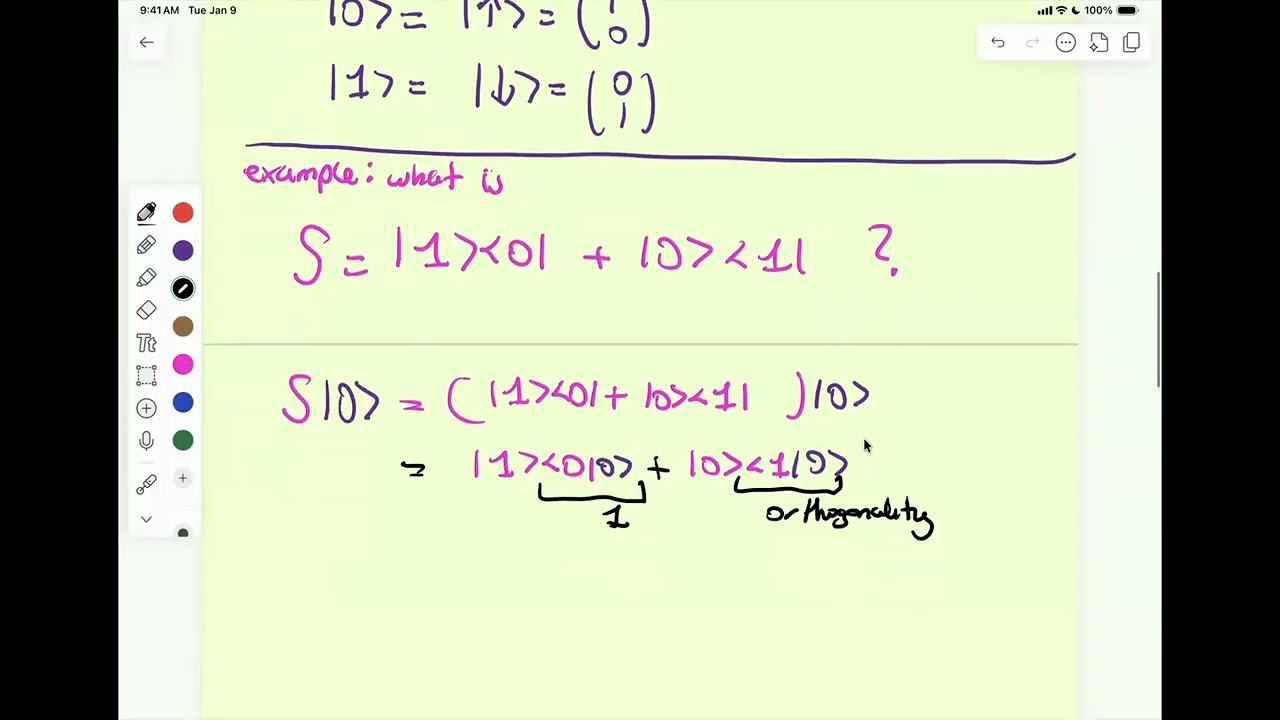 9:41 AM Tue Jan 9
100%
|0> = |↑> = (1 0)
|1> = |↓> = (0 1)
example: what is
S = |1><0| + |0><1| ?
Tt
S|0> = (|1><0| + |0><1| )|0>
= |1><0|0> + |0><1|0>
1 orthogonality